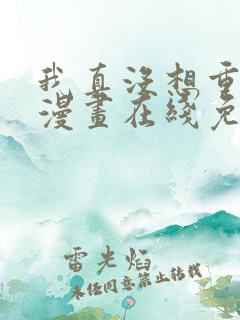 我真没想重
漫畫在綫免
雷光焰
未经同意禁止转载